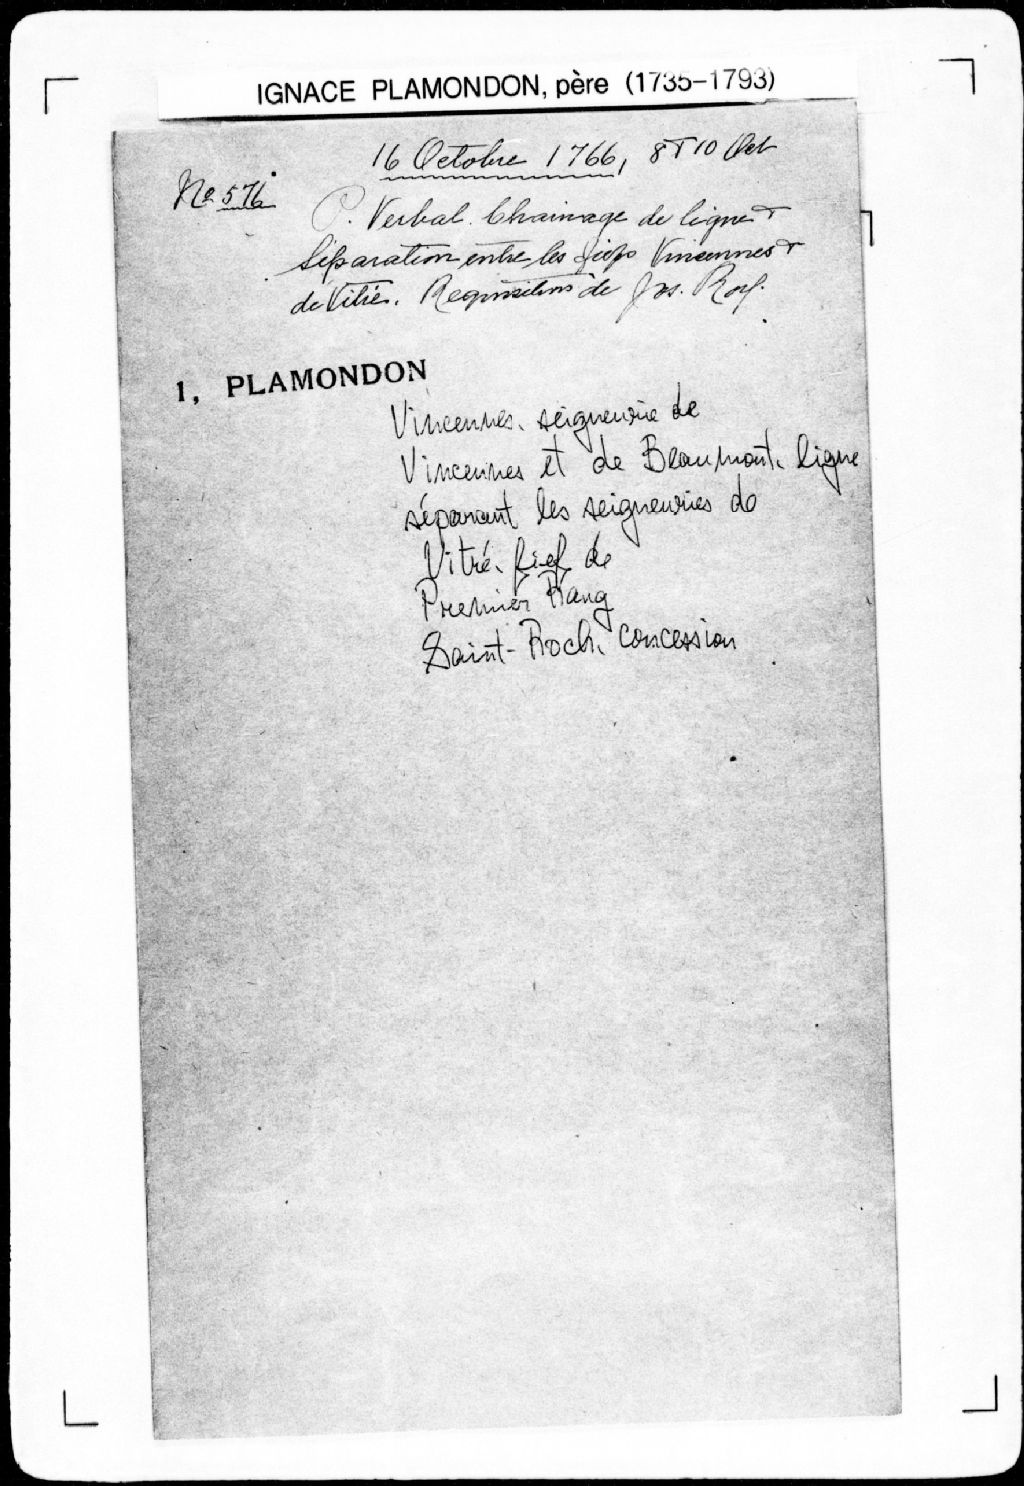 IGNACE PLAMONDON, père (1735–1793)
16 Octobre 1766, 8 & 10 Oct
No 576
P. Verbal. Chainage de ligne &
Séparation entre les fiefs Vincennes &
de Vitré. Requisition de Jos. Roy.
1, PLAMONDON
Vincennes, seigneurie de
Vincennes et de Beaumont, ligne
séparant les seigneuries de
Vitré, fief de
Premier Rang
Saint-Roch, concession